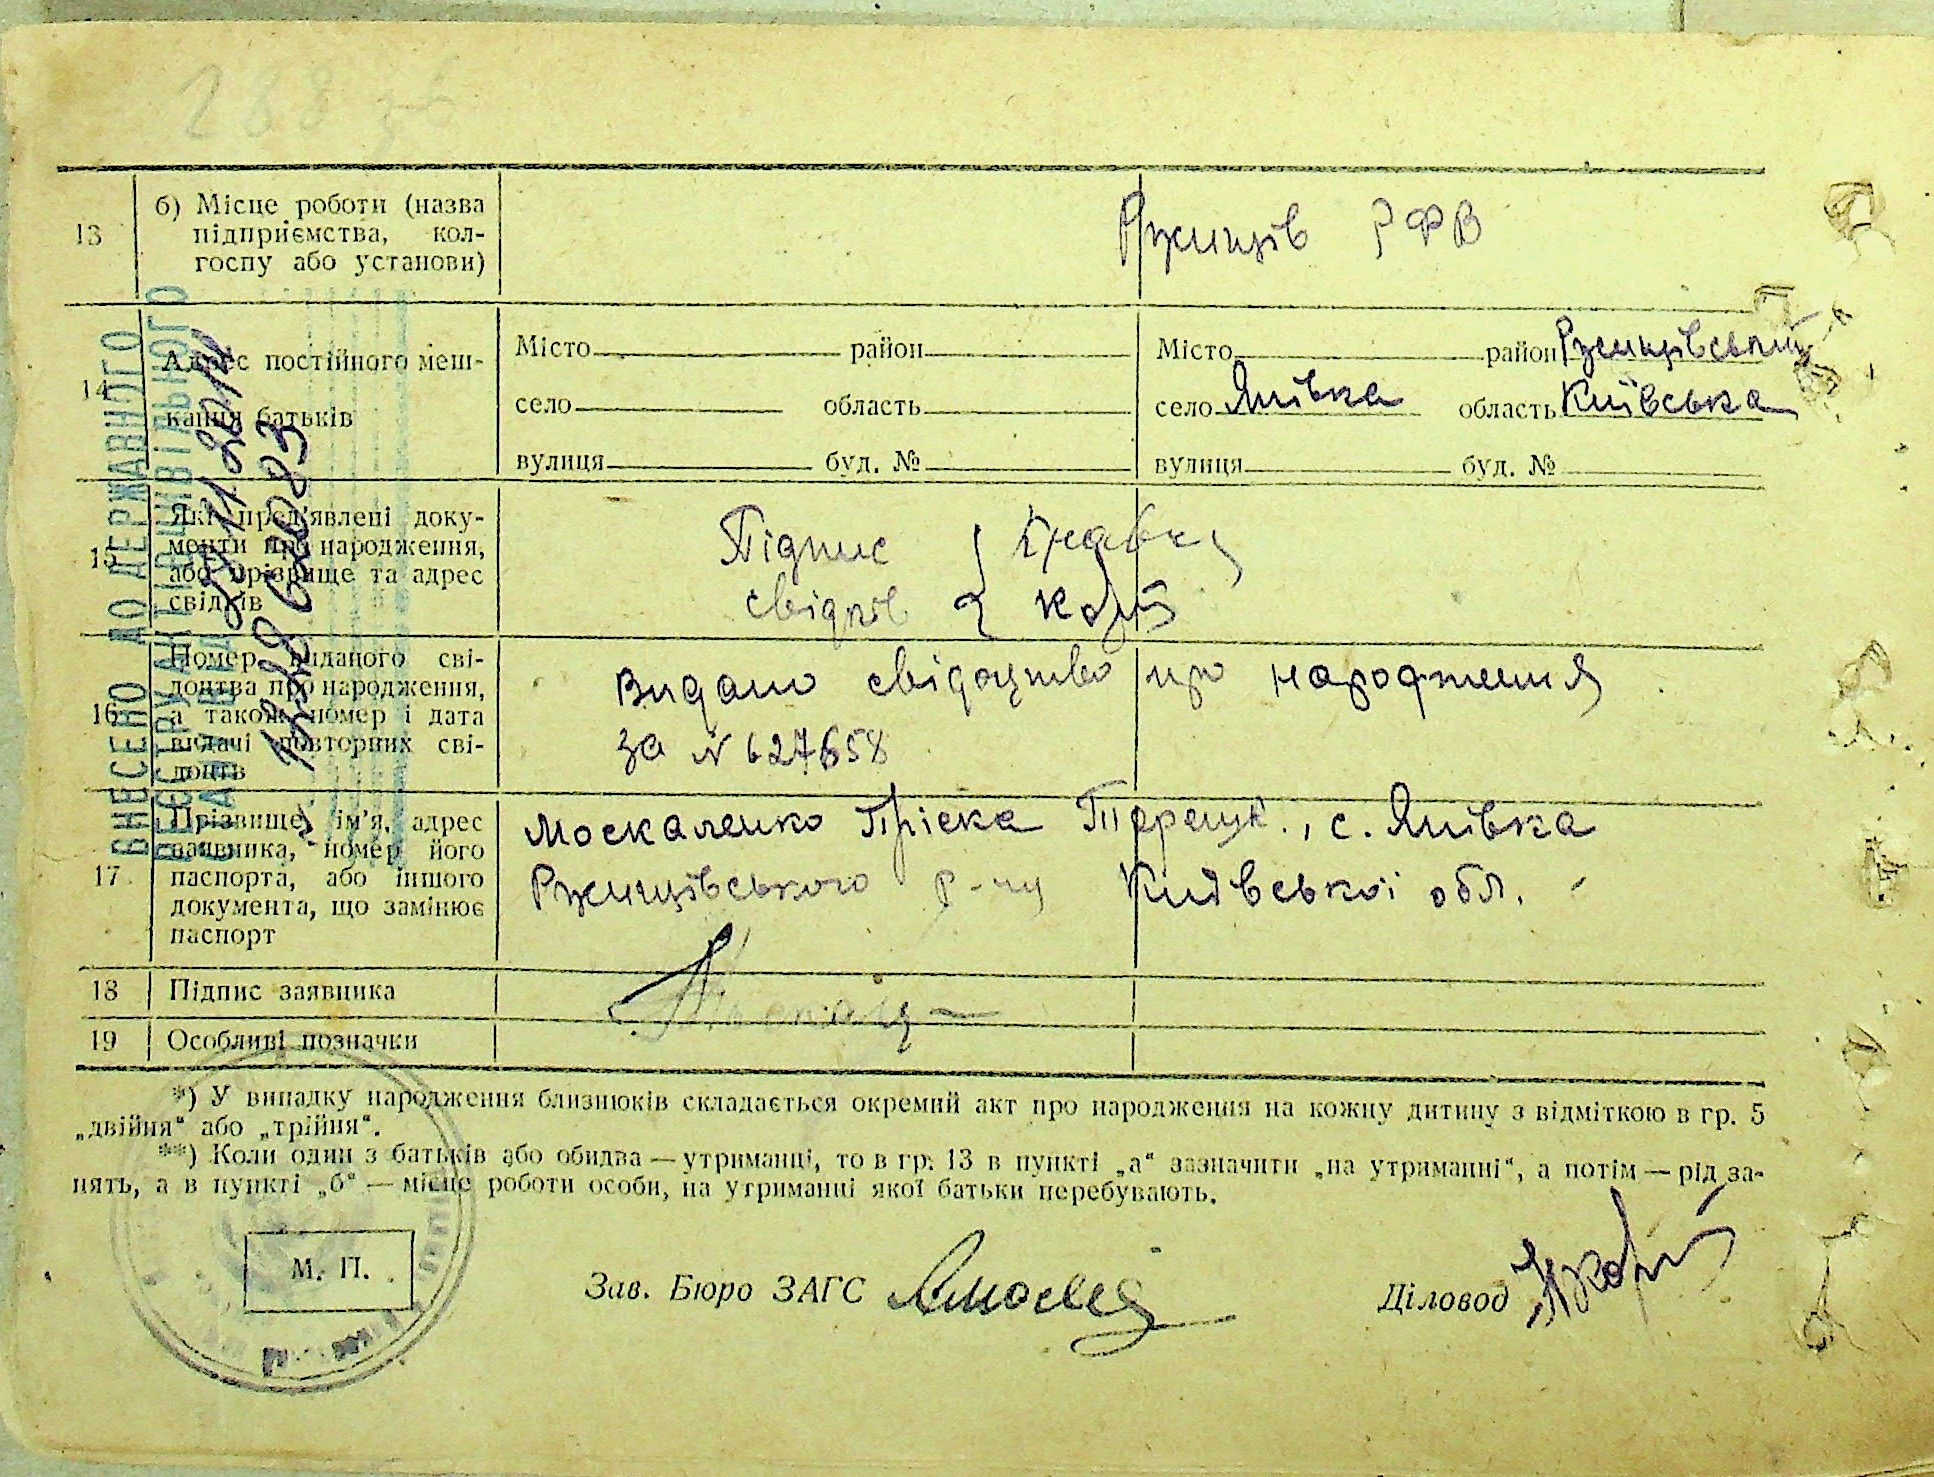 288
13
б) Місце роботи (назва
підприємства, кол-
госпу або установи)
Ружинців РФВ
14
Адрес постійного меш-
кання батьків
Місто район
село область
вулиця буд. №
Місто район Ружинцівський
село Янівка область Київська
вулиця буд. №
15
Які пред'явлені доку-
менти про народження,
або прізвище та адрес
свідків
Підпис
свідків
16
Номер виданого сві-
доцтва про народження,
а також номер і дата
видачі повторних сві-
доцтв
Видано свідоцтво про народження
за N 627658
17
Прізвище, ім'я, адрес
заявника, номер його
паспорта, або іншого
документа, що замінює
паспорт
Москаленко Пріска с. Янівка
Ружинцівського р-ну Київської обл.
18 Підпис заявника
19 Особливі позначки
ВНЕСЕНО ДО ДЕРЖАВНОГО
РЕЄСТРУ АКТІВ ЦИВІЛЬНОГО
СТАНУ
*) У випадку народження близнюків складається окремий акт про народження на кожну дитину з відміткою в гр. 5
„двійня“ або „трійня“.
**) Коли один з батьків або обидва — утриманці, то в гр. 13 в пункті „а“ зазначити „на утриманні“, а потім — рід за-
нять, а в пункті „б“ — місце роботи особи, на утриманні якої батьки перебувають.
М. П.
Зав. Бюро ЗАГС
Діловод